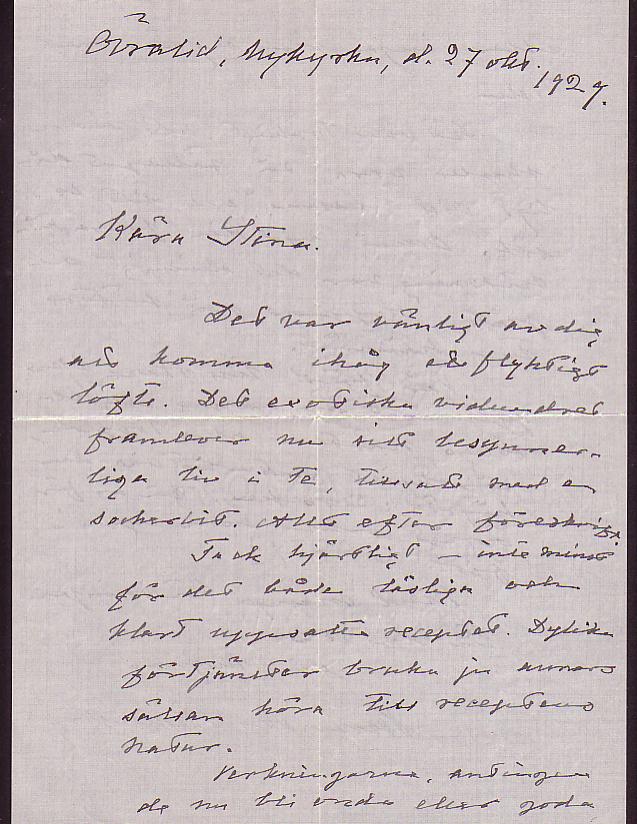 Övralid, Nykyrka, d. 27 okt.
1927.
Kära Stina.
Det var vänligt av dig
att komma ihåg ett flyktigt
löfte. Det exotiska vidundret
framlever nu sitt besynner-
liga liv i te, tillsatt med en
sockerbit. Allt efter föreskrift.
Tack hjärtligt – inte minst
för det både läsliga och
klart uppsatta receptet. Dylika
förtjänster bruka ju annars
sällan höra till receptens
natur.
Verkningarna, antingen
de nu bli onda eller goda,